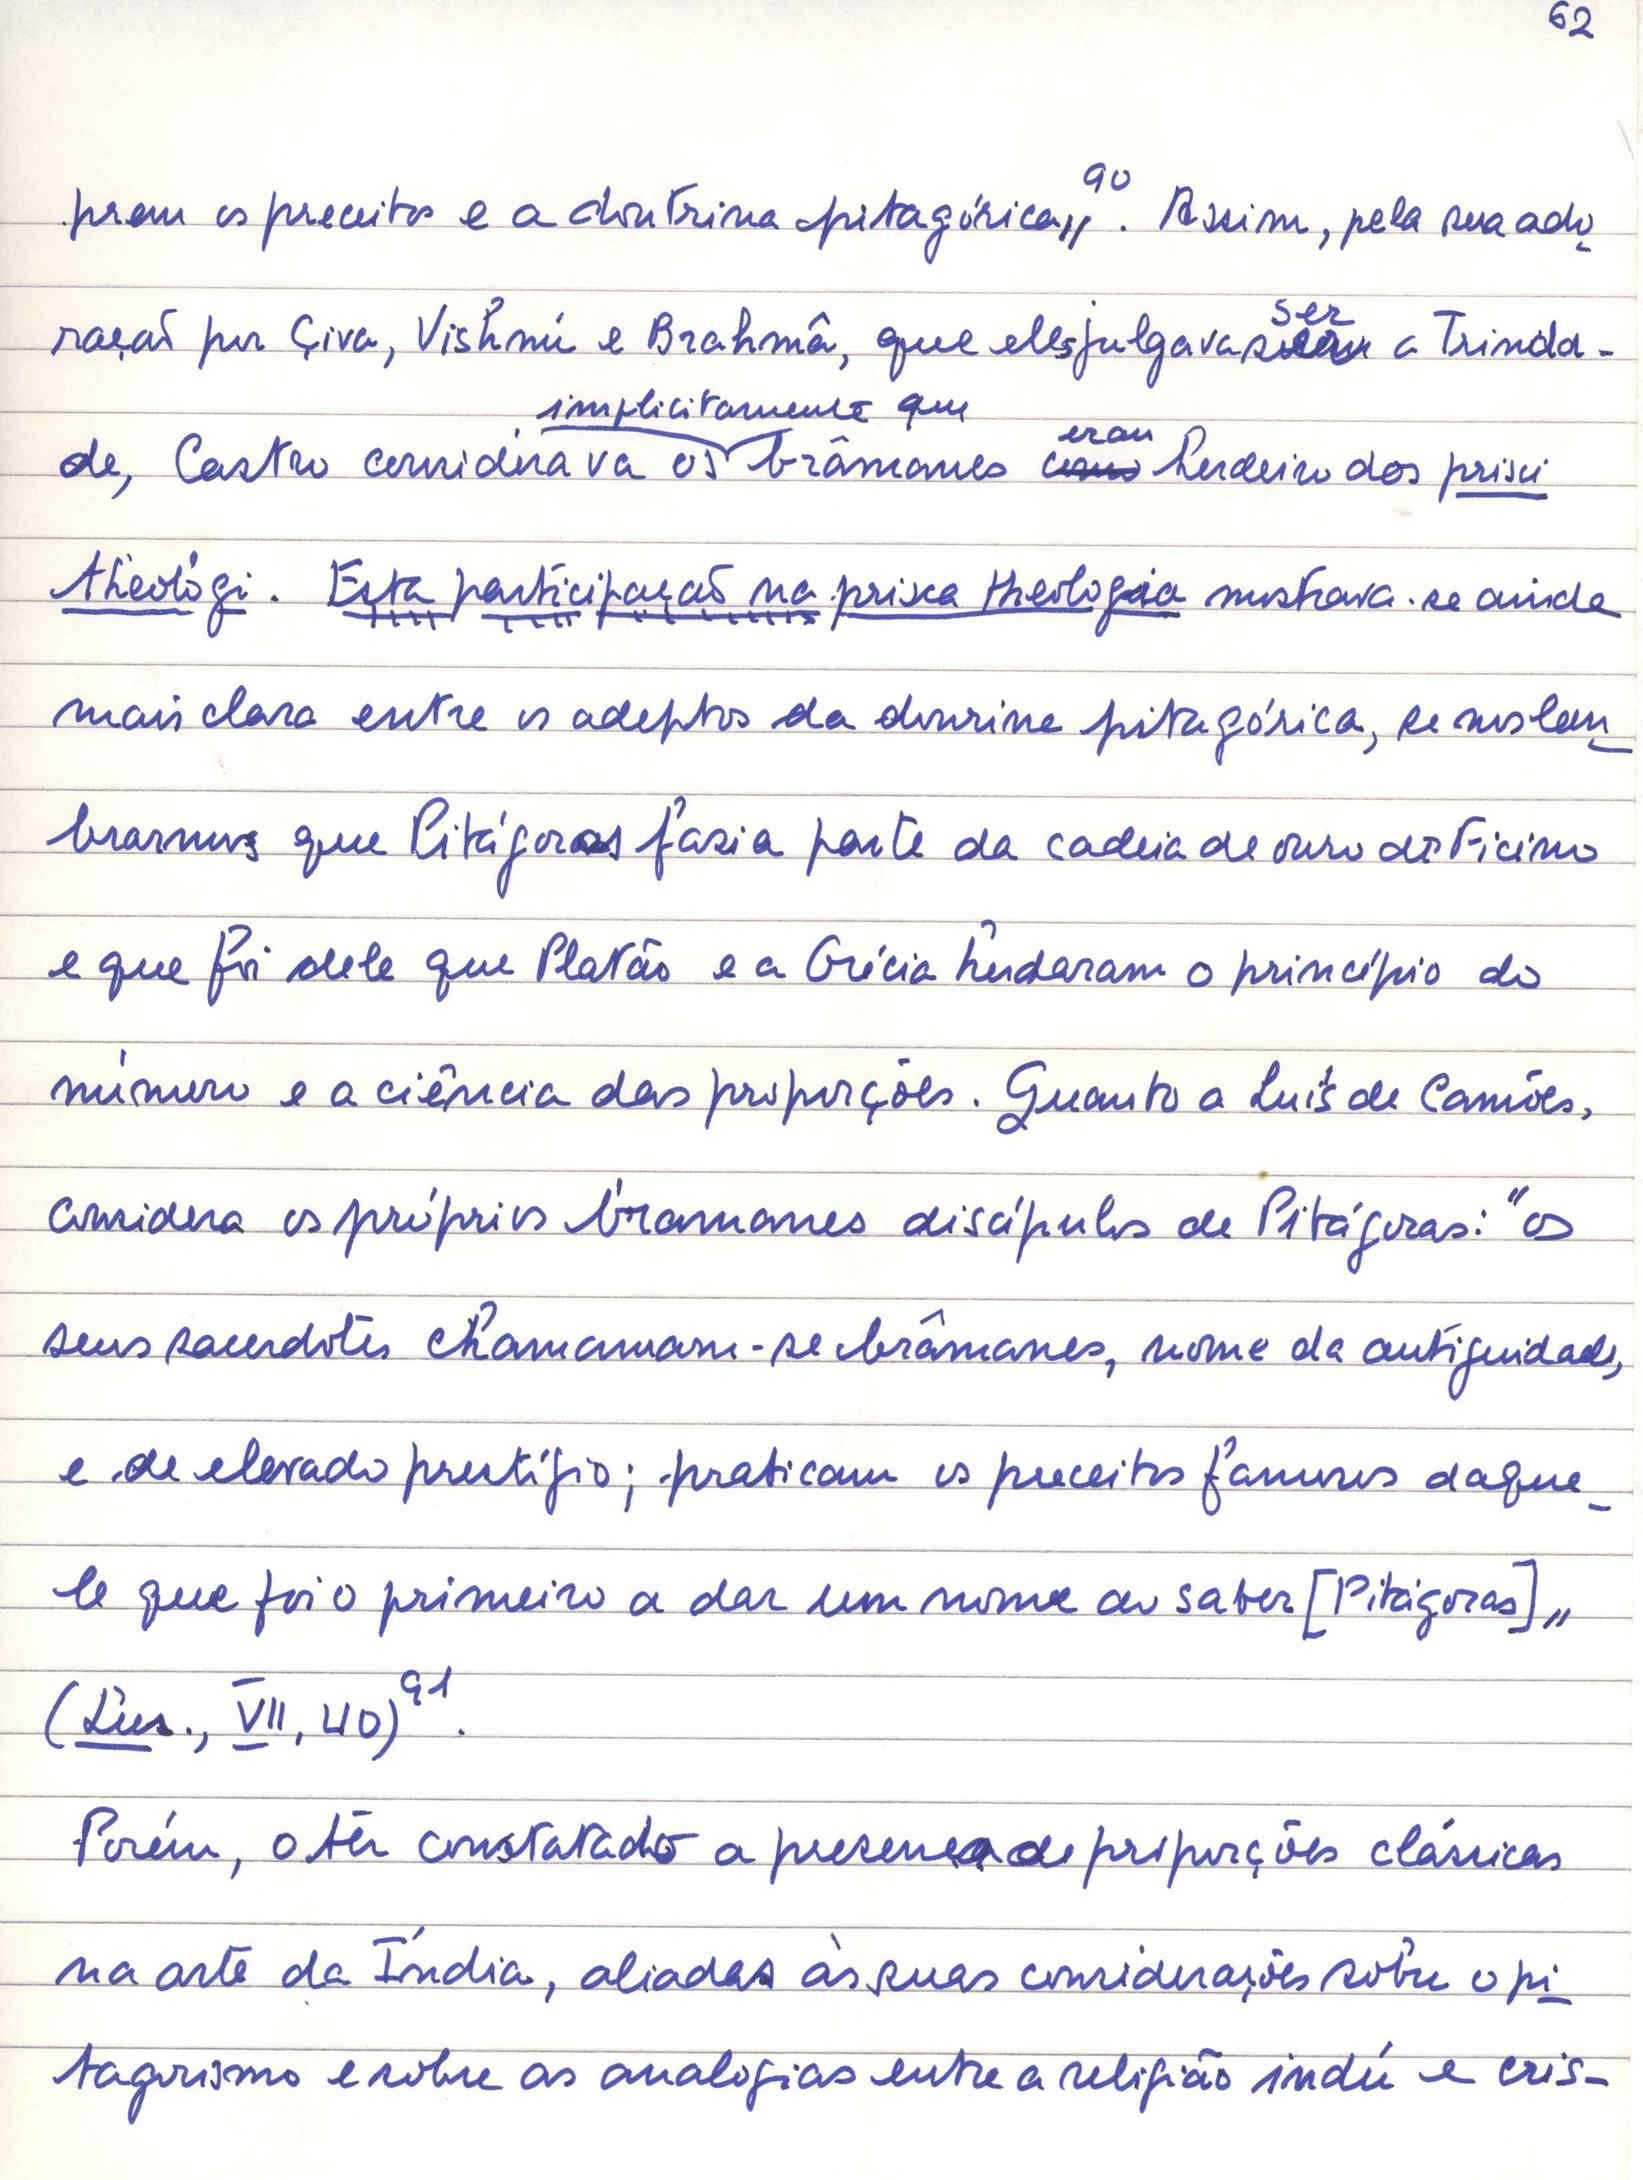 62
prem os preceitos e a doutrina pitagórica„⁹⁰. Assim, pela sua ado
ração por Çiva, Vishnú e Brahmâ, que eles julgavam ser a Trinda-
implicitamente que
de, Castro considerava os brâmanes eram herdeiro dos prisci
theológi. Esta participação na prisca theologia mostrava-se ainda
mais clara entre os adeptos da dourina pitagórica, se nos lem
brarmos que Pitágoras fazia parte da cadeia de ouro de Ficino
e que foi dele que Platão e a Grécia herdaram o princípio do
número e a ciência das proporções. Quanto a Luís de Camões,
considera os próprios bramanes discípulos de Pitágoras: "os
seus sacerdotes chamamam-se brâmanes, nome da antiguidade,
e de elevado prestígio; praticam os preceitos famosos daque_
le que foi o primeiro a dar um nome ao saber [Pitágoras]„
(Lus., VII, 40)⁹¹.
Porém, o ter constatado a presença de proporções clássicas
na arte da Índia, aliadas às suas considerações sôbre o pi_
tagorismo e sobre as analogias entre a religião indú e cris-